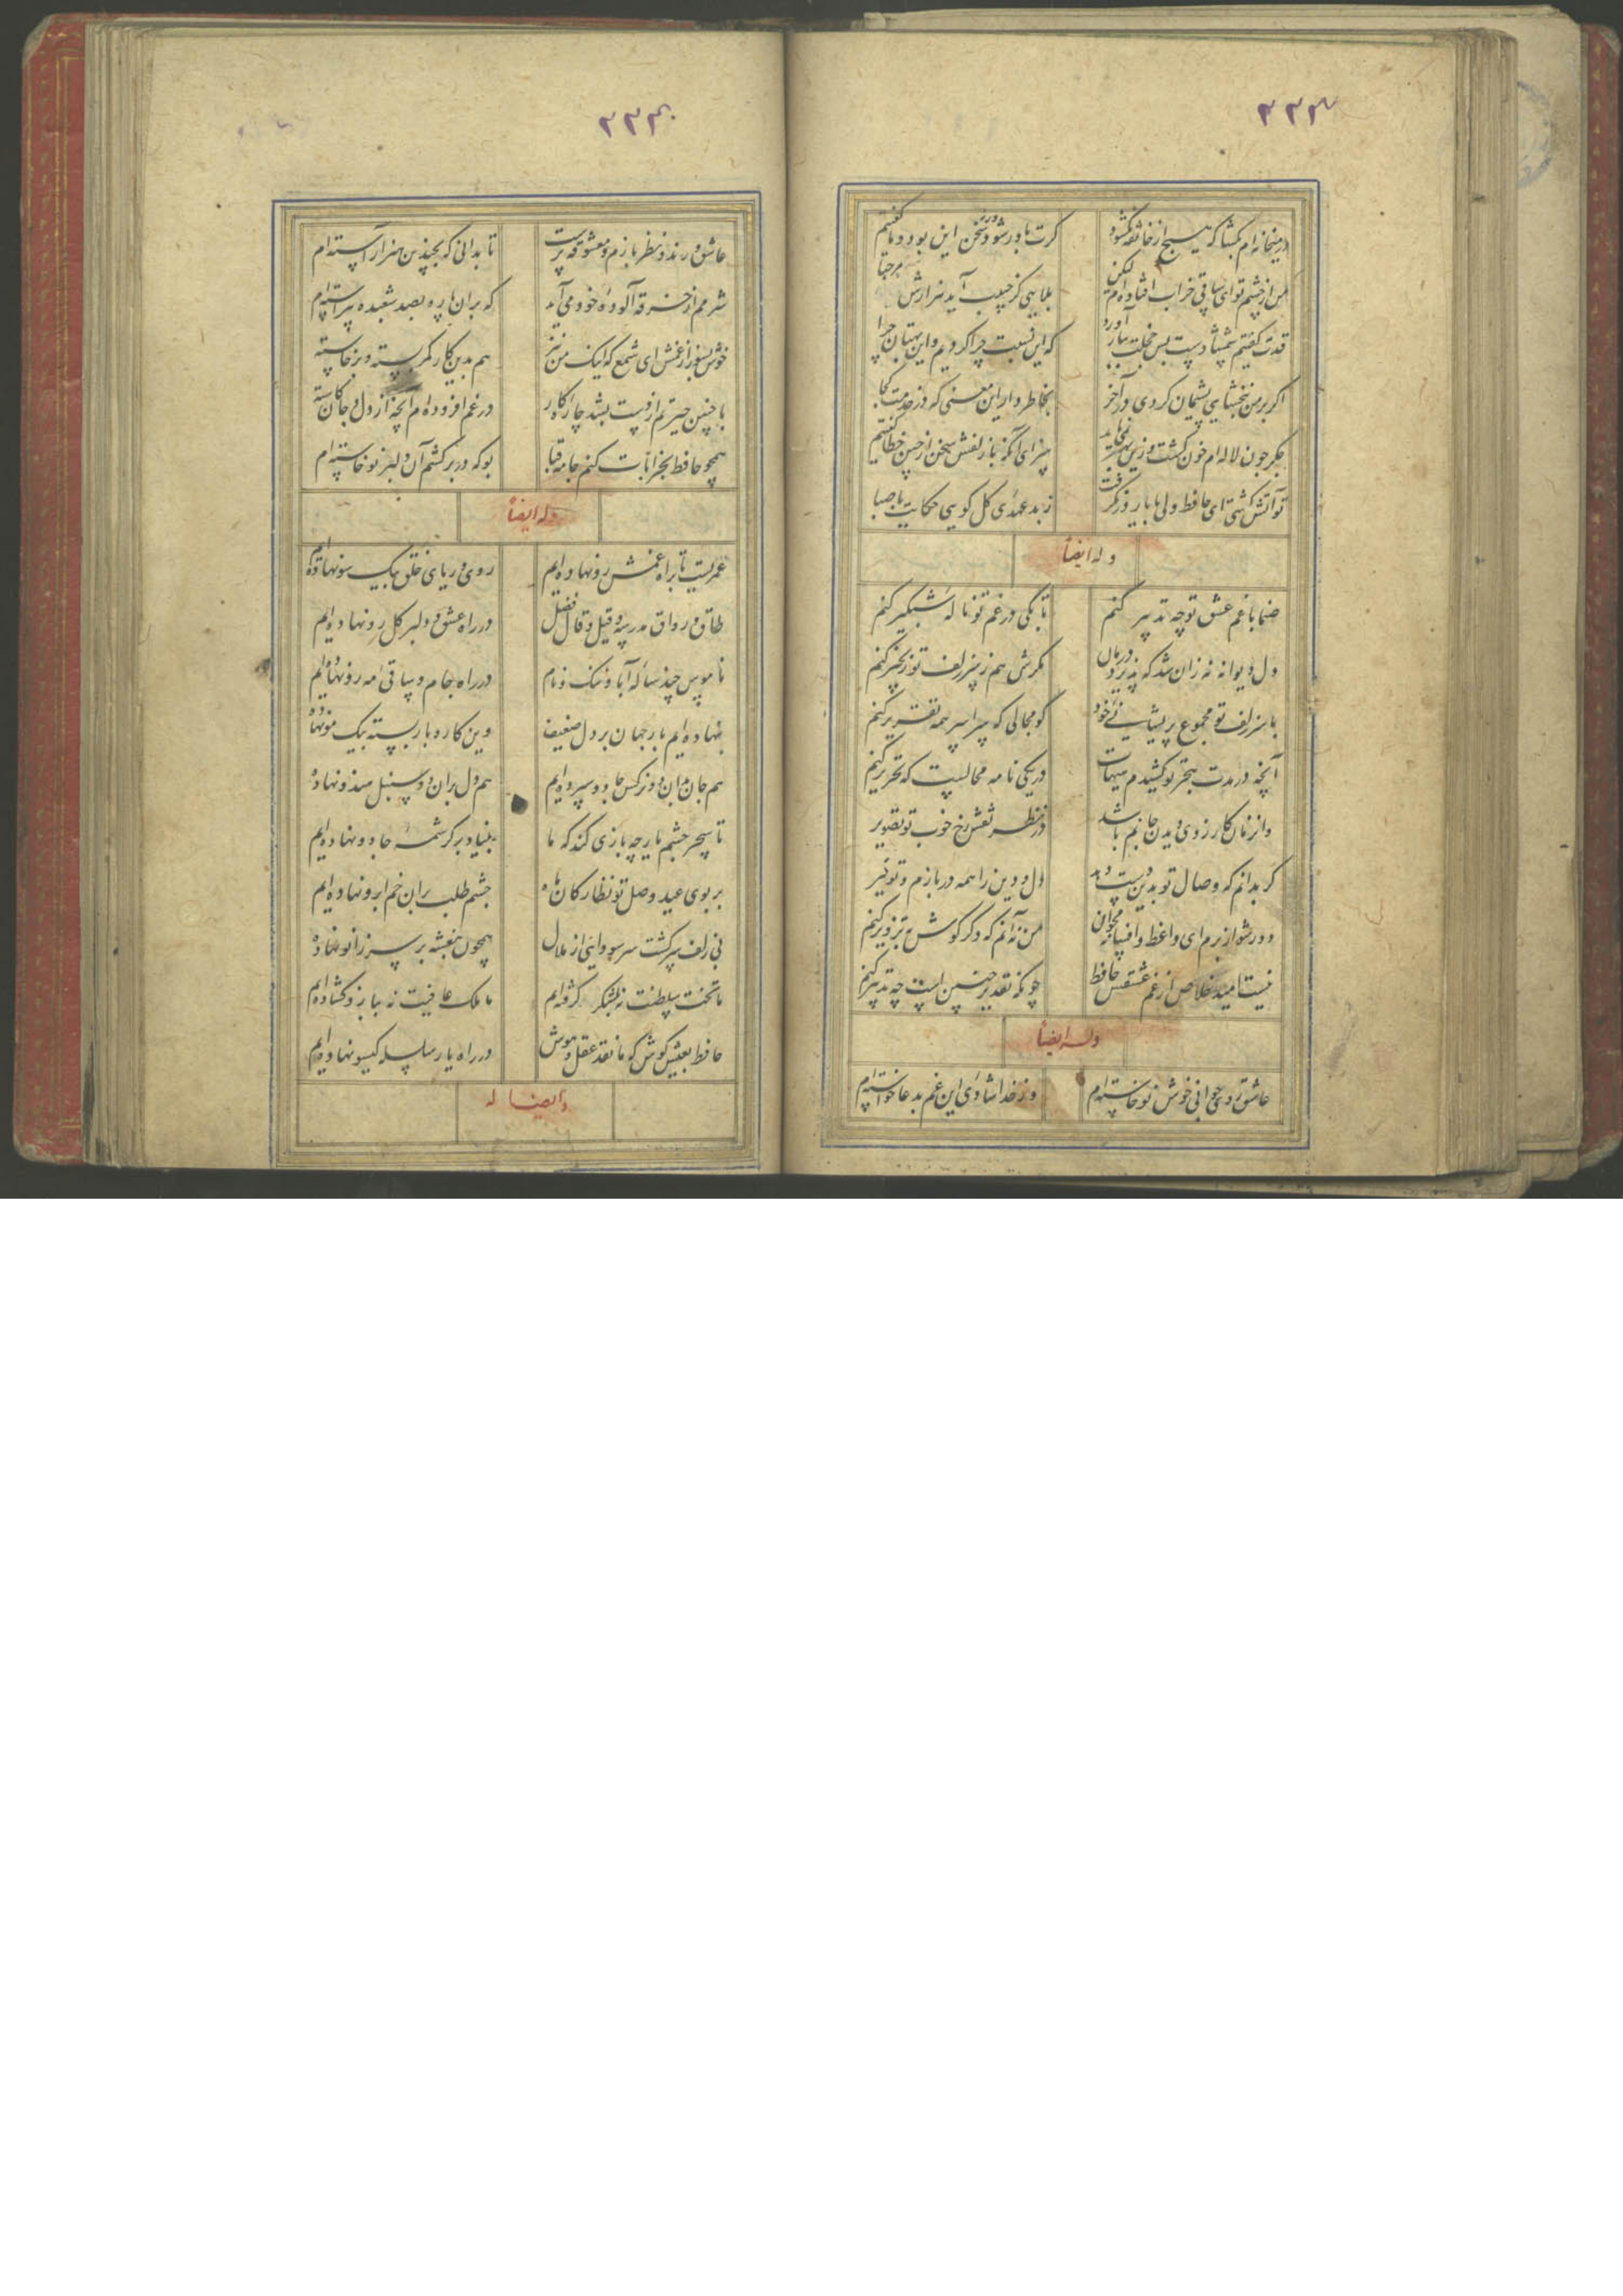 ۳۳۳
در میخانه‌ام بکشا که هیچ از خانقه نکشود
کرت باور شود ورنه سخن این بود و ما کفتیم
من از چشم تو ای ساقی خراب افتاده‌ام لیکن
بلایی کز حبیب آید هزارش مرحبا
قدت کفتم شمشادست بس خجلت ببار آورد
که این نسبت چرا کردیم و این بهتان چرا
اکر بر من نبخشایی پشیمان کردی در آخر
بخاطر دار این معنی که در خدمت کجا
جکر چون نافه‌ام خون کشت و زین بهتر نمی‌باید
سزای آنکه با زلفش سخن از چین خطا کفتیم
تو آتش کشتی ای حافظ ولی با یار در نکرفت
ز بد عهدی کل کویی حکایت با صبا
وله ایضاً
صنما با غم عشق تو چه تدبیر کنم
تا بکی در غم تو ناله شبکیر کنم
دل دیوانه نه زان شد که پذیرد درمان
مکرش هم ز سر زلف تو زنجیر کنم
با سر زلف تو مجموع پریشانی خود
کو مجالی که سراسر همه تقریر کنم
آنچه در مدت هجر تو کشیدم هیهات
در یکی نامه محالست که تحریر کنم
وانزمان کارزوی دیدن جانم باشد
در نظر نقش رخ خوب تو تصویر
کر بدانم که وصال تو بدین دست دهد
دل و دین را همه در بازم و توفیر
دور شو از برم ای واعظ و افسانه مخوان
من نه آنم که دکر کوش بتزویر کنم
نیست امید خلاص از غم عشقش حافظ
چونکه تقدیر چنین است چه تدبیر کنم
وله ایضاً
عاشق روی جوانی خوش نوخاسته‌ام
وز خدا شادی این غم بدعا خواسته‌ام
۳۳۴
عاشق و رند و نظر بازم و معشوقه پرست
تا بدانی که بچندین هنر آراسته‌ام
شرمم از خرقه آلوده خود می‌آید
که بران پاره بصد شعبده پیراسته‌ام
خوش بسوز از غمش ای شمع که اینک من نیز
هم بدین کار کمر بسته و برخاسته
با چنین حیرتم از دست بشد چاره کار
در غم افزوده‌ام آنچه از دل و جان کاسته
همچو حافظ بخرابات کنم جامه قبا
بو که در بر کشم آن دلبر نوخاسته‌ام
وله ایضاً
عمریست تا براه غمش رو نهاده‌ایم
روی و ریای خلق بیک سو نهاده‌ایم
طاق و رواق مدرسه و قیل و قال فضل
در راه عشق دلبر کل رو نهاده‌ایم
ناموس چند ساله آبا و ننک و نام
در راه جام و ساقی مه رو نهاده‌ایم
بنهاده‌ایم بار جهان بر دل ضعیف
وین کار و بار بسته بیک مو نهاده
هم جان بدان دو نرکس جادو سپرده‌ایم
هم دل بران دو سنبل هندو نهاده
تا سحر چشم یار چه بازی کند که ما
بنیاد بر کرشمه جادو نهاده‌ایم
بر بوی عید وصل تو نظارکان ماه
چشم طلب بران خم ابرو نهاده‌ایم
بی زلف سرکشت سر سودایی از ملال
همچون بنفشه بر سر زانو نهاده
ما تخت سلطنت نه بلشکر کرفته‌ایم
ما ملک عافیت نه ببازو کشاده‌ایم
حافظ بعیش کوش که ما نقد عقل و هوش
در راه یار سلسله کیسو نهاده‌ایم
وایضا له